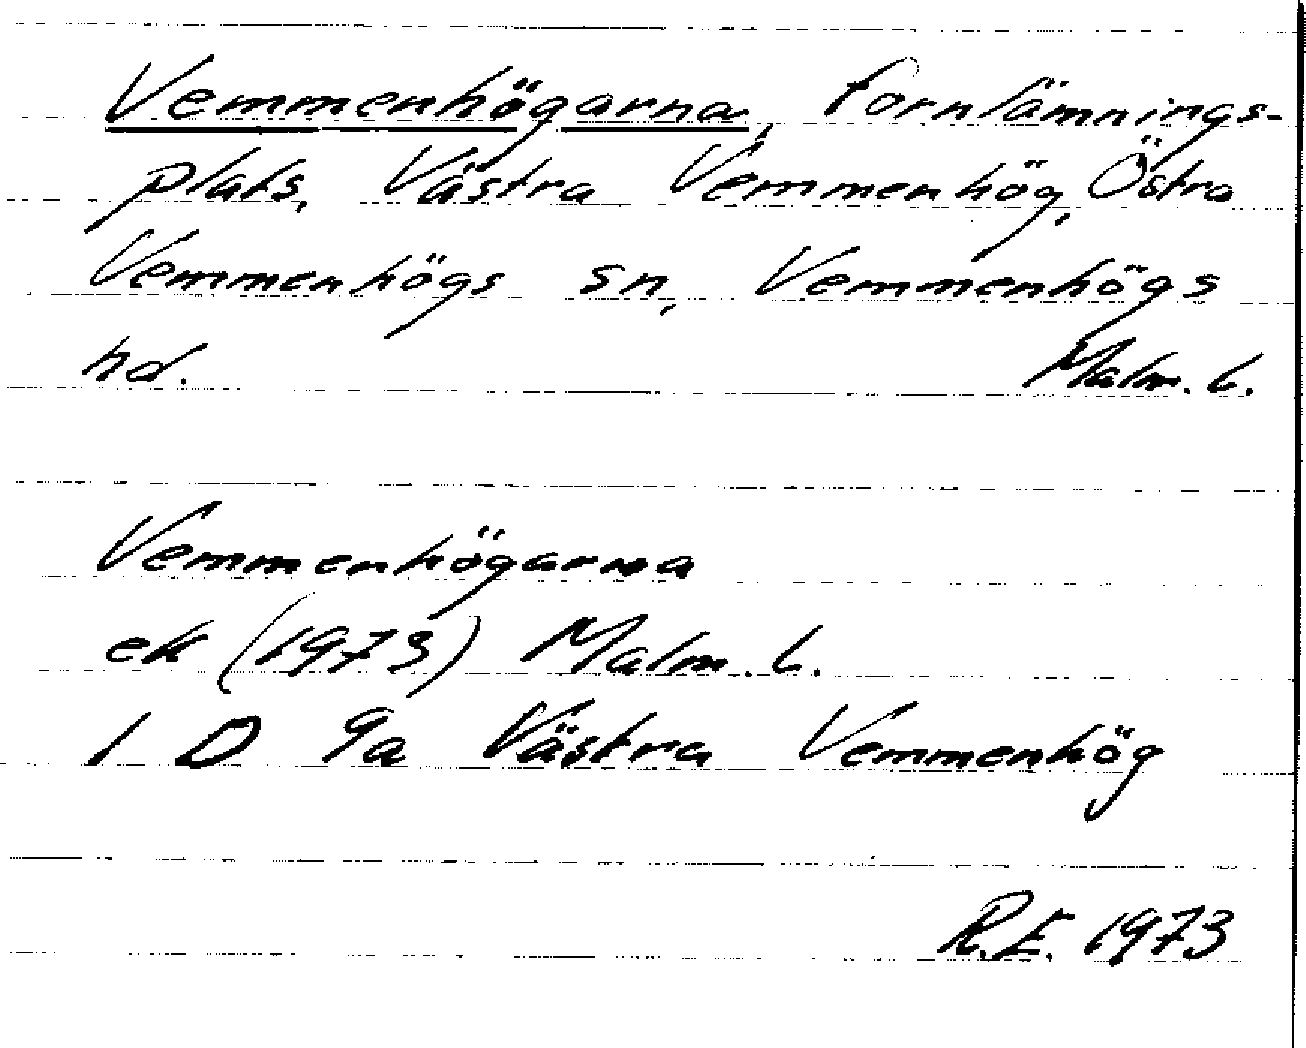 Vemmenhögarna, fornlämnings-
plats, Västra Vemmenhög, Östra
Vemmenhögs sn, Vemmenhögs
hd. Malm. l.
Vemmenhögarna
ek (1973) Malm. l.
1 D 9a Västra Vemmenhög
R.E. 1973